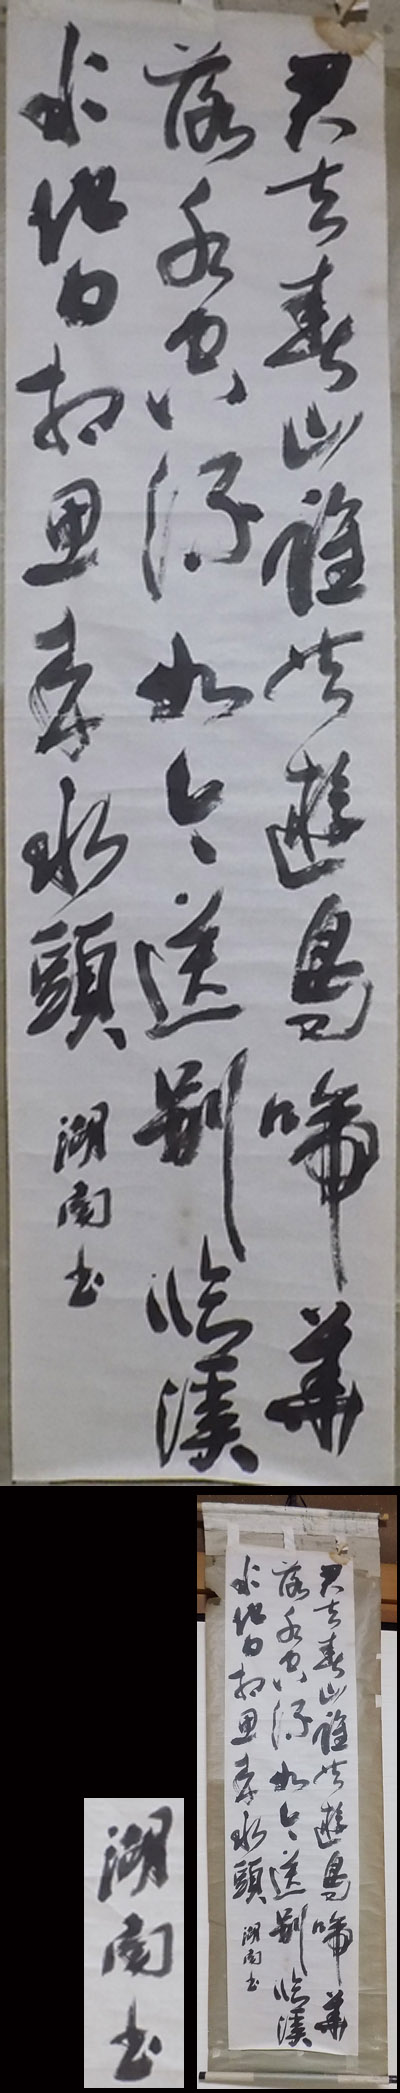 君去春山誰共遊鳥啼華
落水空流如今送別臨溪
水他日相思来水頭
湖南書
湖南書
君去春山誰共遊鳥啼華
落水空流如今送別臨溪
水他日相思来水頭
湖南書